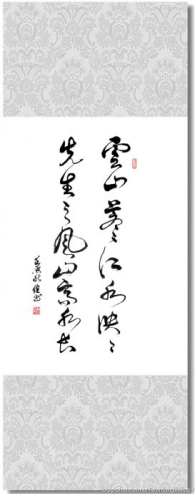 雲山蒼〻江水泱〻
先生之風山高水長